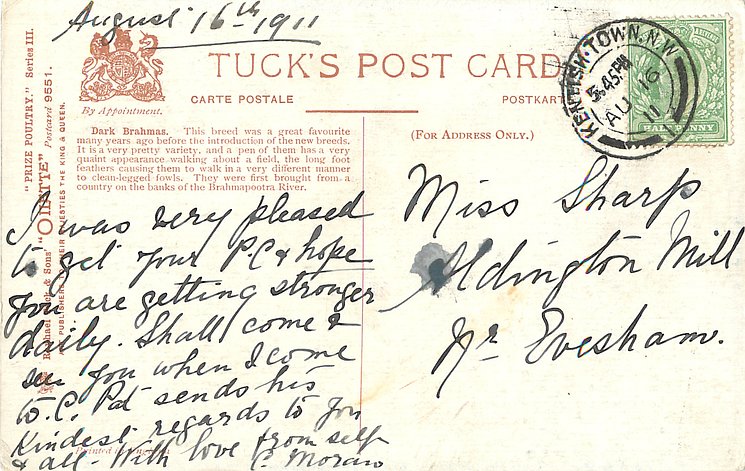 August 16th 1911
TUCK'S POST CARD
CARTE POSTALE
POSTKART
By Appointment.
"PRIZE POULTRY." Series III.
"OILETTE" Postcard 9551.
Raphael Tuck & Sons'
PUBLISHERS THEIR MAJESTIES THE KING & QUEEN.
Dark Brahmas. This breed was a great favourite
many years ago before the introduction of the new breeds.
It is a very pretty variety, and a pen of them has a very
quaint appearance walking about a field, the long foot
feathers causing them to walk in a very different manner
to clean-legged fowls. They were first brought from a
country on the banks of the Brahmapootra River.
(FOR ADDRESS ONLY.)
KENTISH·TOWN.N.W
5.45PM
AU 16
11
HALFPENNY
I was very pleased
to get your P.C & hope
you are getting stronger
daily. Shall come &
see you when I come
to C. Pat sends his
kindest regards to you
& all. With love from self
C. Moran
Miss Sharp
Aldington Mill
Nr Evesham.
Printed in England